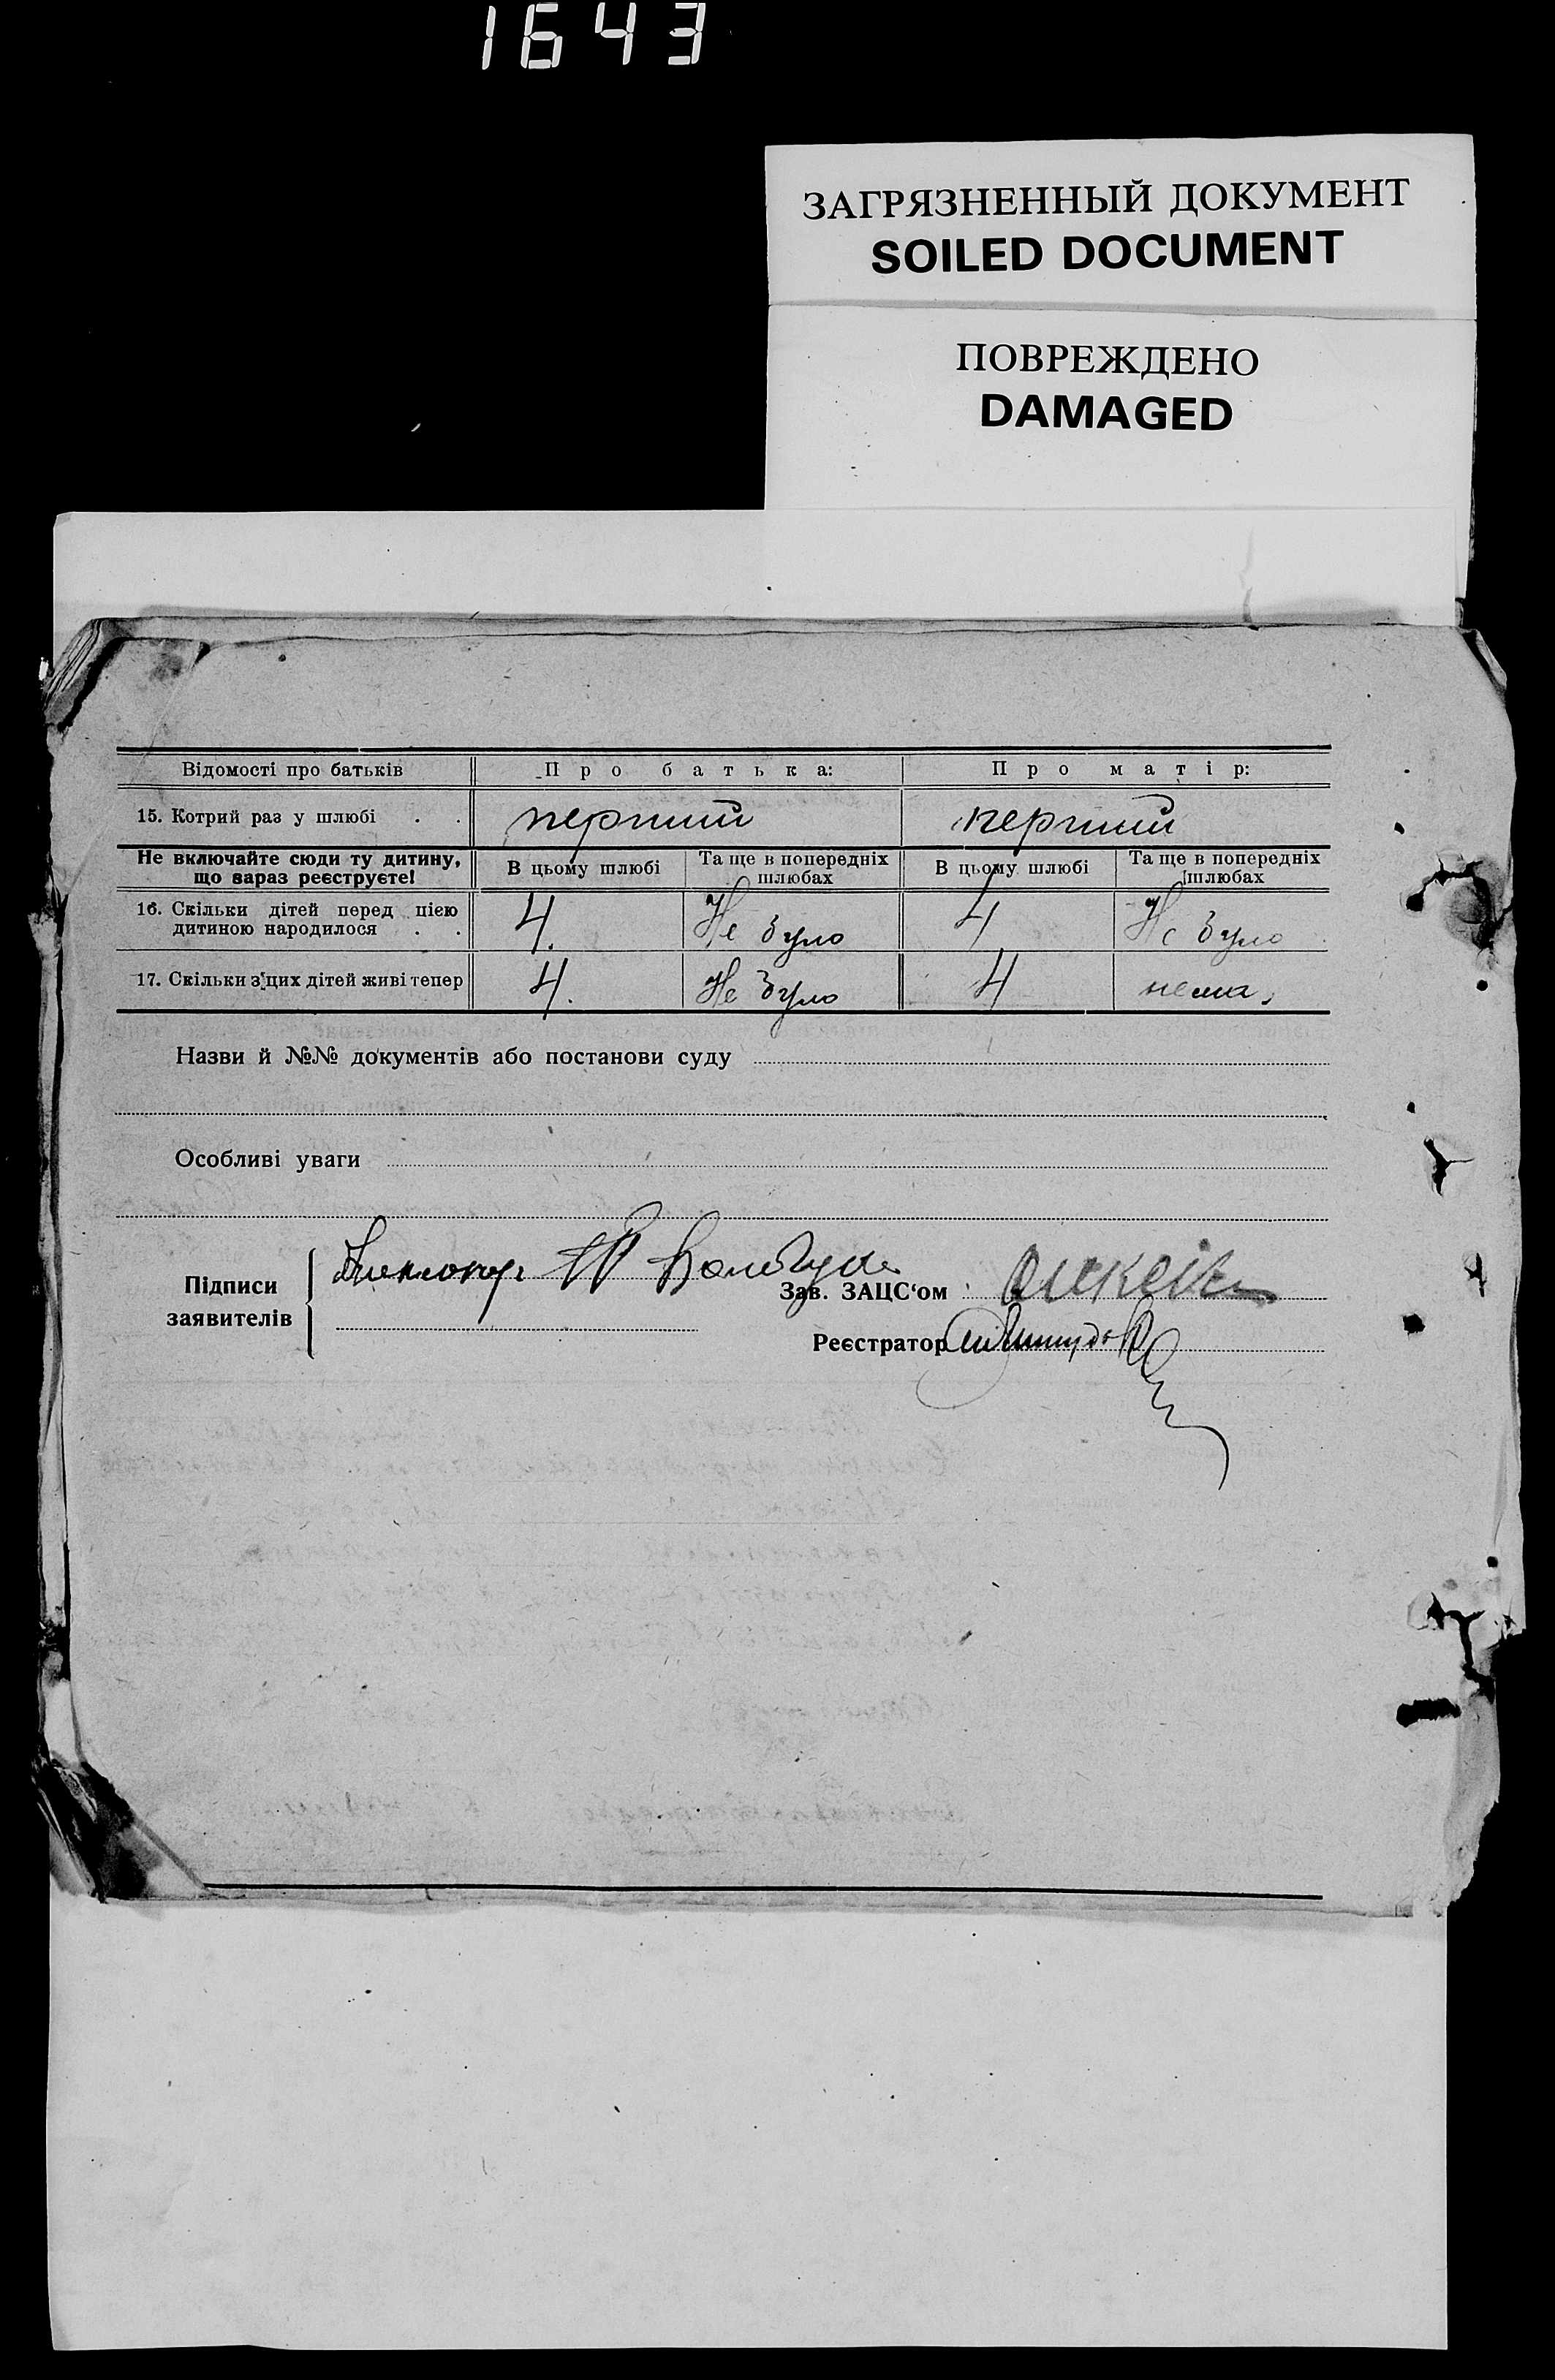 1643
ЗАГРЯЗНЕННЫЙ ДОКУМЕНТ
SOILED DOCUMENT
ПОВРЕЖДЕНО
DAMAGED
Відомості про батьків Про батька: Про матір:
15. Котрий раз у шлюбі . . перший перший
Не включайте сюди ту дитину, що вараз реєструєте! В цьому шлюбі Та ще в попередніх шлюбах В цьому шлюбі Та ще в попередніх шлюбах
16. Скільки дітей перед цією дитиною народилося . . 4. Не було 4 Не було
17. Скільки з цих дітей живі тепер 4. Не було 4 нема,
Назви й №№ документів або постанови суду
Особливі уваги
Підписи
заявителів
Зав. ЗАЦС'ом
Реєстратор